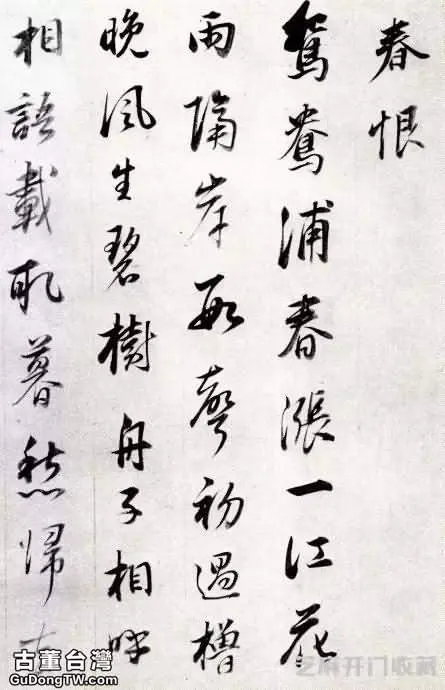 春恨
鴛鴦浦春漲一江花
雨隔岸數聲初過櫓
晚風生碧樹舟子相呼
相語載取暮愁歸去
古董台灣
GuDongTW.com
芝麻开门收藏